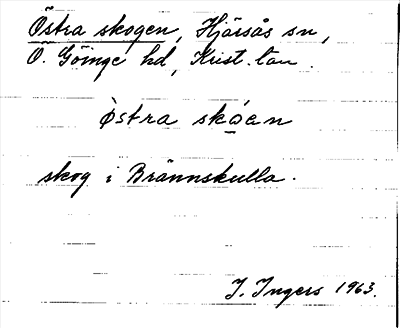 Östra skogen, Hjärsås sn,
Ö. Göinge hd, Krist. län.
Östra skåen
skog i Brännskulla.
I. Ingers 1963.